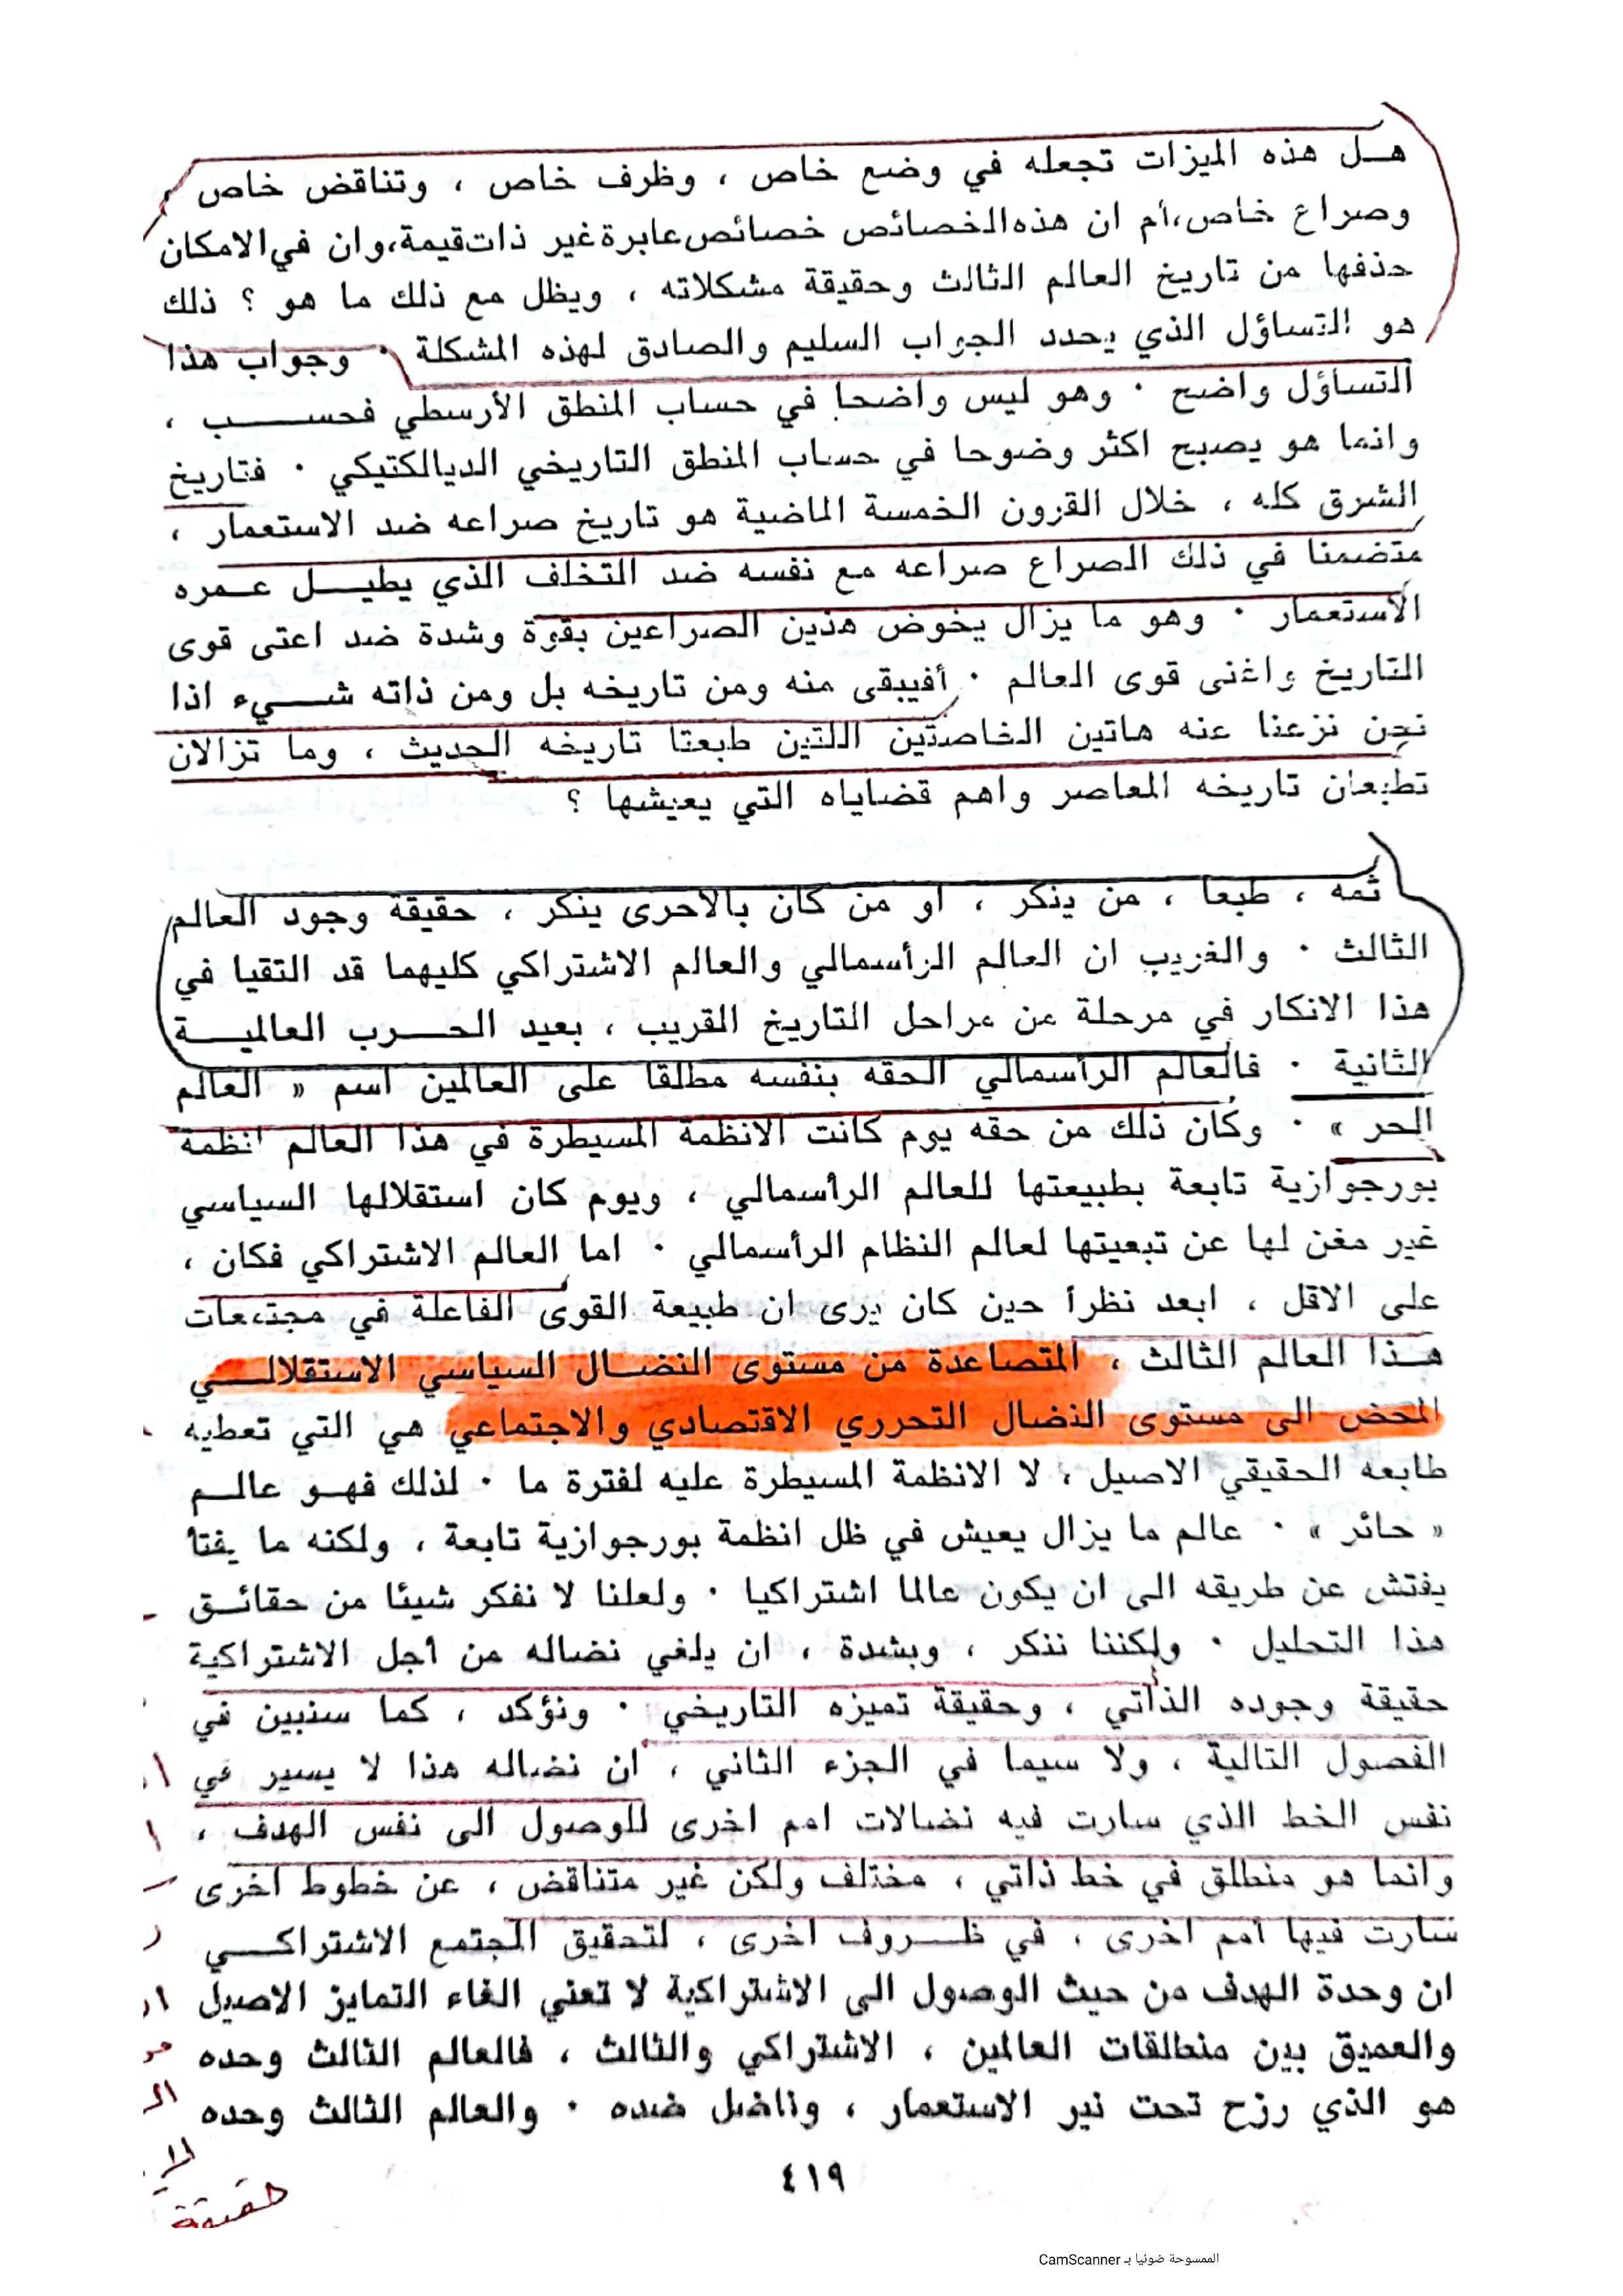 هـل هذه الميزات تجعله في وضع خاص ، وظرف خاص ، وتناقض خاص
وصراع خاص،أم ان هذه الخصائص خصائص عابرة غير ذات قيمة،وان في الامكان
حذفها من تاريخ العالم الثالث وحقيقة مشكلاته ، ويظل مع ذلك ما هو ؟ ذلك
هو التساؤل الذي يحدد الجواب السليم والصادق لهذه المشكلة ٠ وجواب هذا
التساؤل واضح ٠ وهو ليس واضحا في حساب المنطق الأرسطي فحســـب ،
وانما هو يصبح اكثر وضوحا في حساب المنطق التاريخي الديالكتيكي ٠ فتاريخ
الشرق كله ، خلال القرون الخمسة الماضية هو تاريخ صراعه ضد الاستعمار ،
متضمنا في ذلك الصراع صراعه مع نفسه ضد التخلف الذي يطيـــل عـمره
الاستعمار ٠ وهو ما يزال يخوض هذين الصراعين بقوة وشدة ضد اعتى قوى
التاريخ واغنى قوى العالم ٠ أفيبقى منه ومن تاريخه بل ومن ذاته شـــيء اذا
نحن نزعنا عنه هاتين الخاصتين اللتين طبعتا تاريخه الحديث ، وما تزالان
تطبعان تاريخه المعاصر واهم قضاياه التي يعيشها ؟
ثمه ، طبعا ، من ينكر ، او من كان بالاحرى ينكر ، حقيقة وجود العالم
الثالث ٠ والغريب ان العالم الرأسمالي والعالم الاشتراكي كليهما قد التقيا في
هذا الانكار في مرحلة من مراحل التاريخ القريب ، بعيد الحـــرب العالميـــة
الثانية ٠ فالعالم الرأسمالي الحقه بنفسه مطلقا على العالمين اسم « العالم
الحر » ٠ وكان ذلك من حقه يوم كانت الانظمة المسيطرة في هذا العالم انظمة
بورجوازية تابعة بطبيعتها للعالم الرأسمالي ، ويوم كان استقلالها السياسي
غير مغن لها عن تبعيتها لعالم النظام الرأسمالي ٠ اما العالم الاشتراكي فكان ،
على الاقل ، ابعد نظرأ حين كان يرى ان طبيعة القوى الفاعلة في مجتمعات
هـذا العالم الثالث ، المتصاعدة من مستوى النضـال السياسي الاستقلالـــي
المحض الى مستوى النضال التحرري الاقتصادي والاجتماعي هي التي تعطيه
طابعه الحقيقي الاصيل ، لا الانظمة المسيطرة عليه لفترة ما ٠ لذلك فهـو عالـــم
« حائر » ٠ عالم ما يزال يعيش في ظل انظمة بورجوازية تابعة ، ولكنه ما يفتأ
يفتش عن طريقه الى ان يكون عالما اشتراكيا ٠ ولعلنا لا نفكر شيئا من حقائـق
هذا التحليل ٠ ولكننا ننكر ، وبشدة ، ان يلغي نضاله من أجل الاشتراكية
حقيقة وجوده الذأتي ، وحقيقة تميزه التاريخي ٠ ونؤكد ، كما سنبين في
الفصول التالية ، ولا سيما في الجزء الثاني ، ان نضاله هذا لا يسير في
نفس الخط الذي سارت فيه نضالات امم اخرى للوصول الى نفس الهدف ،
وانما هو منطلق في خط ذاتي ، مختلف ولكن غير متناقض ، عن خطوط اخرى
سارت فيها امم اخرى ، في ظـــروف اخرى ، لتحقيق المجتمع الاشتراكـــي
ان وحدة الهدف من حيث الوصول الى الاشتراكية لا تعني الغاء التمايز الاصيل
والعميق بين منطلقات العالمين ، الاشتراكي والثالث ، فالعالم الثالث وحده
هو الذي رزح تحت نير الاستعمار ، وناضل ضده ٠ والعالم الثالث وحده
٤١٩
حقيقة
الممسوحة ضوئيا بـ CamScanner